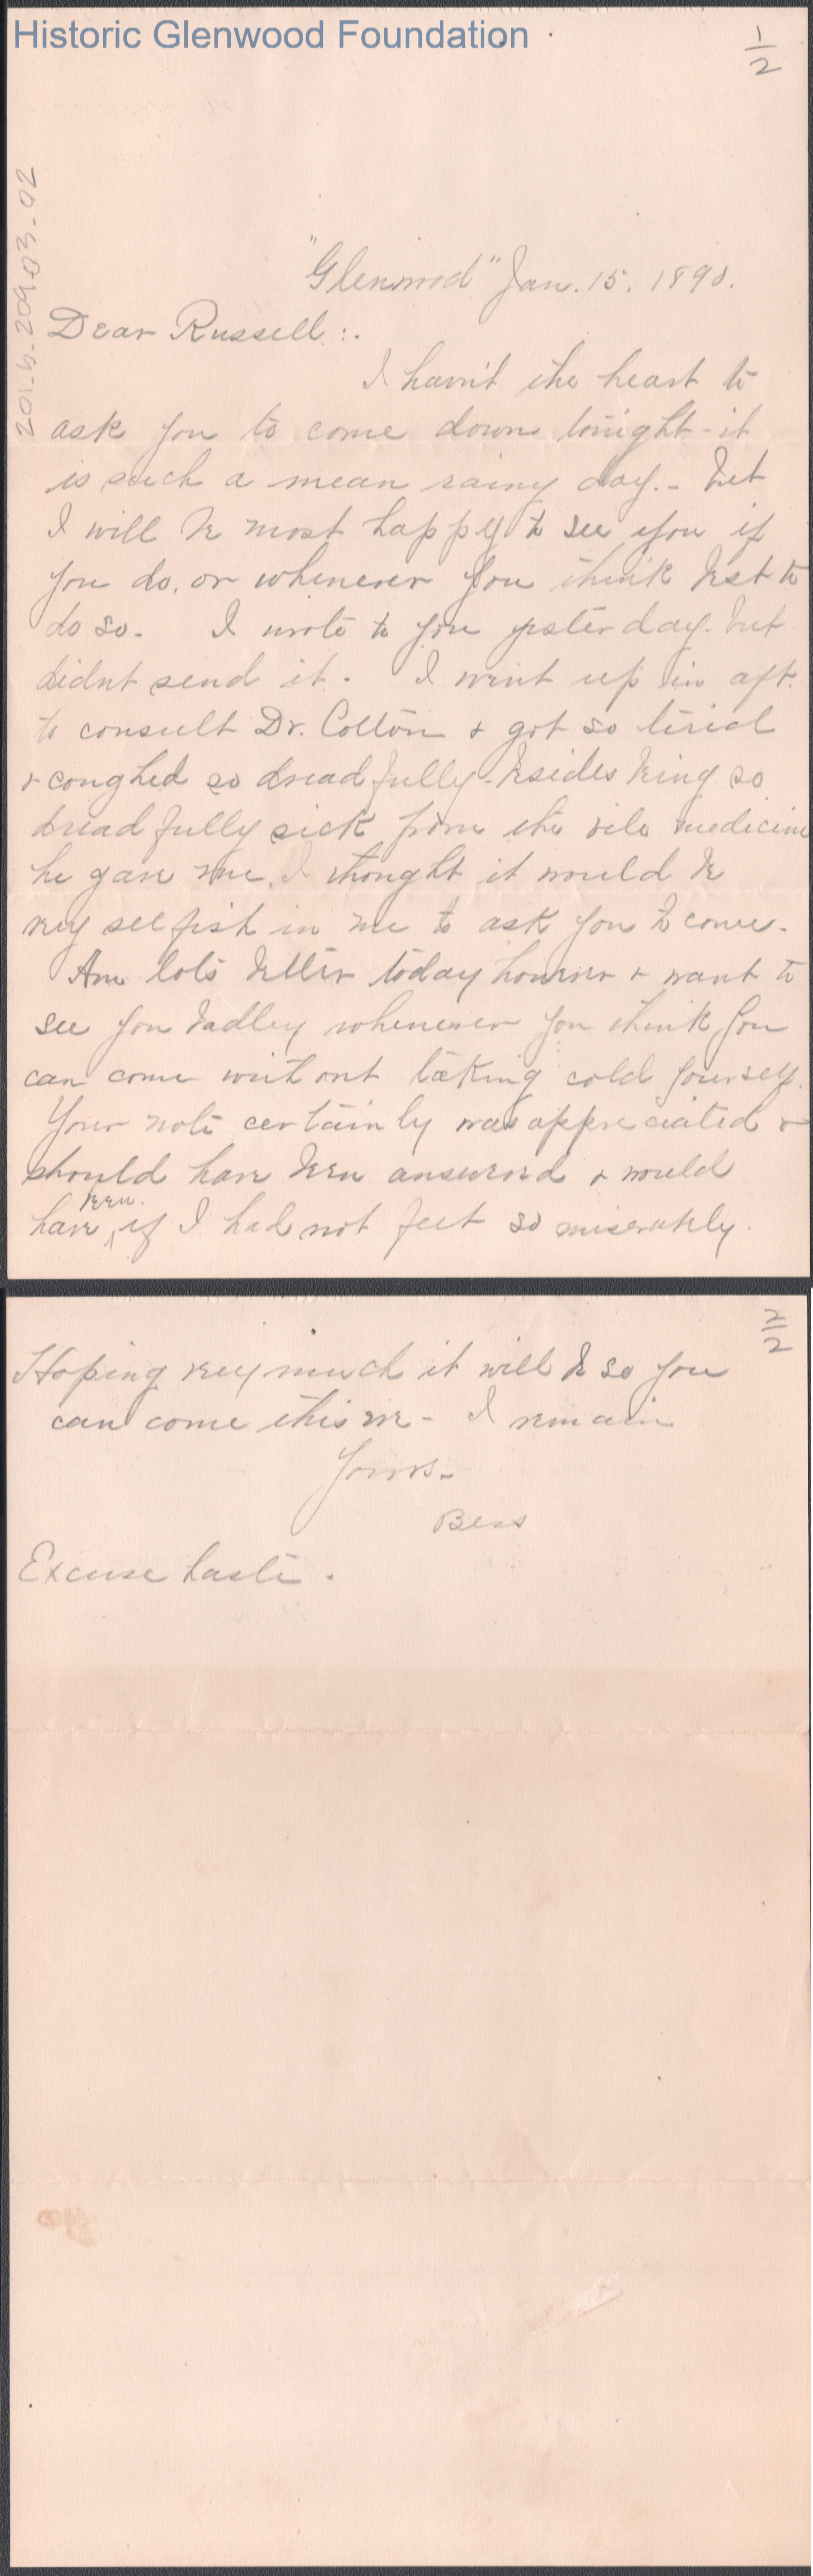 Historic Glenwood Foundation
1/2
201-5-209-03-02
"Glenwood" Jan. 15. 1890.
Dear Russell:.
I havn't the heart to
ask you to come down tonight - it
is such a mean rainy day. - but
I will be most happy to see you if
you do, or whenever you think best to
do so. I wrote to you yesterday but
didnt send it. I went up in aft.
to consult Dr. Colton & got so tired
& coughed so dreadfully - besides being so
dreadfully sick from the vile medicine
he gave me, I thought it would be
very selfish in me to ask you to come.
Am lots better today however & want to
see you badley whenever you think you
can come without taking cold yourself.
Your note certainly was appreciated &
should have been answered & would
have been. if I had not felt so miserably.
2/2
Hoping very much it will be so you
can come this eve - I remain
Yours.
Bess
Excuse haste.